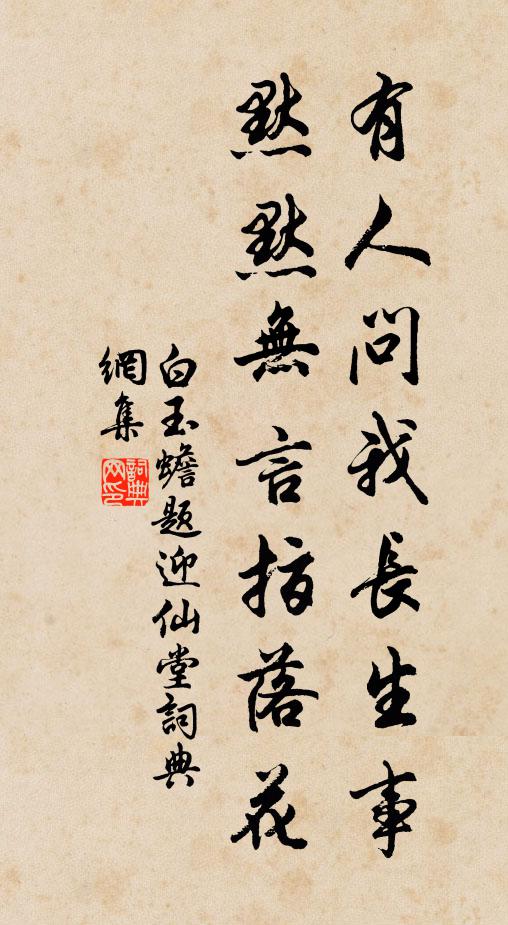 有人問我長生事
默默無言指落花
白玉蟾題迎仙堂詞典
網集
詞典
网印